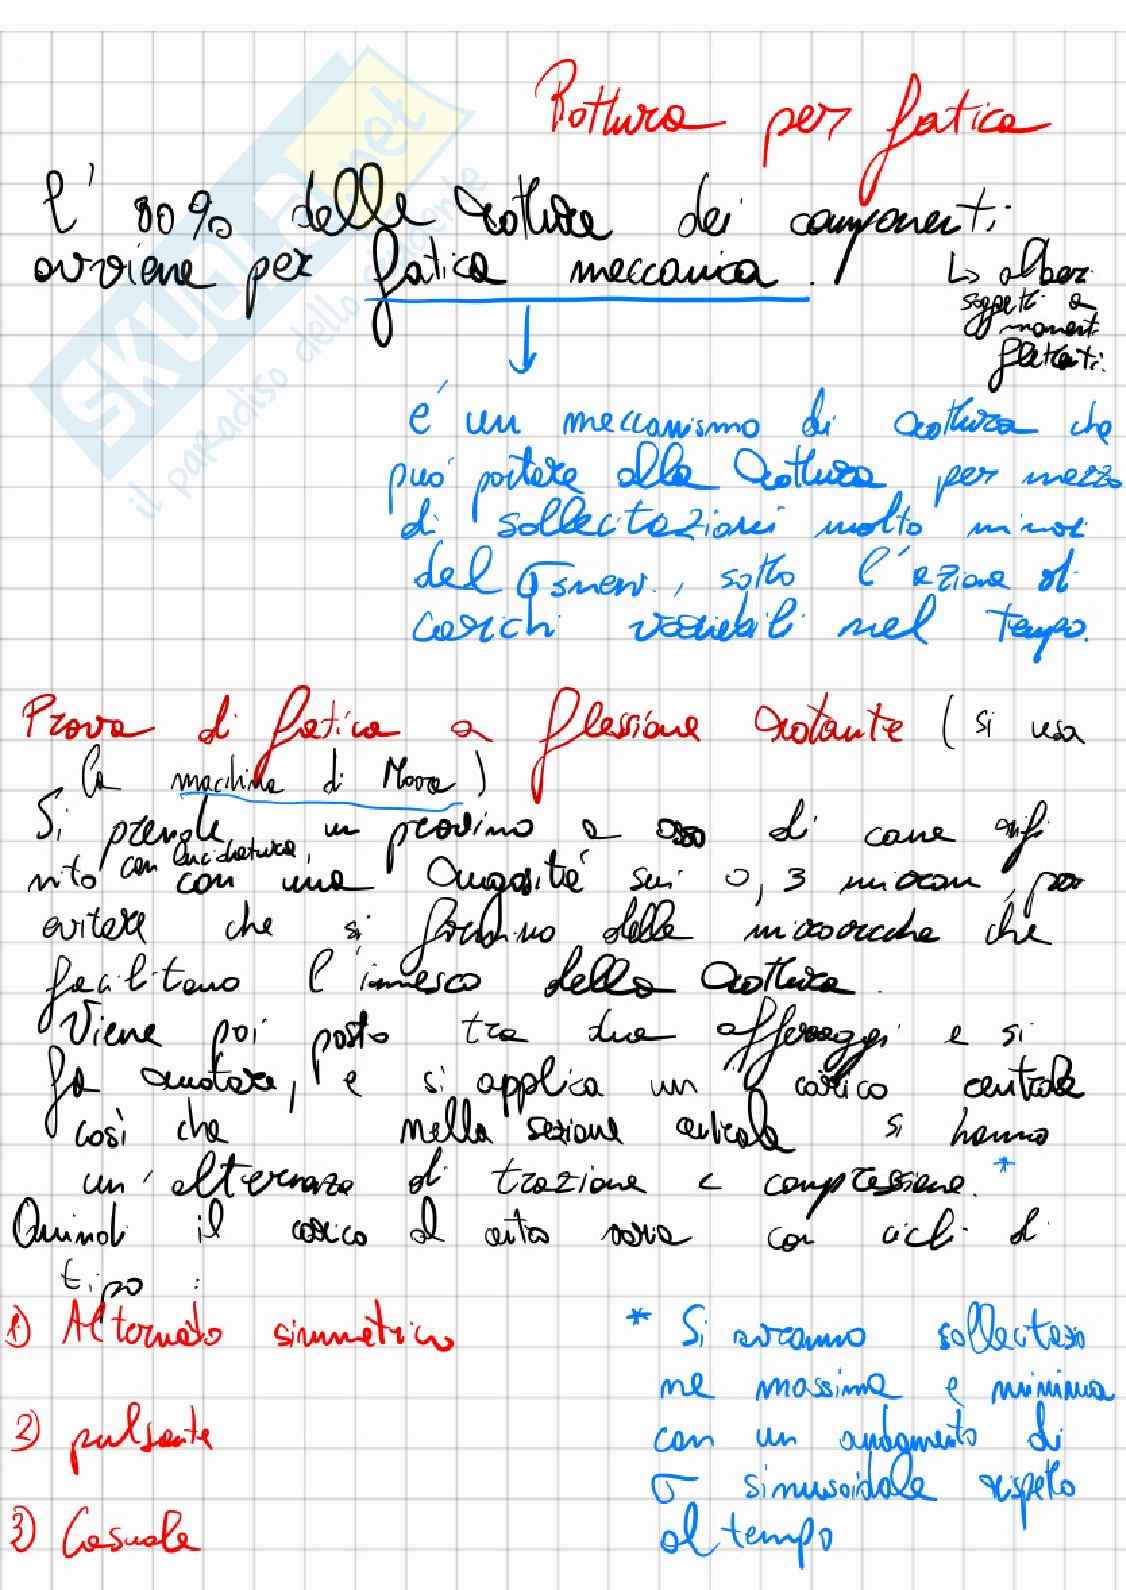 Rottura per fatica
L' 80% delle rotture dei componenti
avviene per fatica meccanica.
↳ alberi
soggetti a
momenti
flettenti.
é un meccanismo di rottura che
puó portare alla rottura per mezzo
di sollecitazioni molto minori
del σsnerv., sotto l'azione di
carichi variabili nel tempo.
Prova di fatica a flessione rotante (si usa
la macchina di Moore)
Si prende un provino a osso di cane rifi
nito con lucidatura, con una rugositá sui 0,3 micron, per
evitare che si formino delle microcricche che
facilitano l'innesco della rottura.
Viene poi posto tra due afferraggi e si
fa ruotare, e si applica un carico centrale
così che nella sezione centrale si hanno
un'alternanza di trazione e compressione.*
Quindi il carico al centro varia con cicli di
tipo:
1) Alternato simmetrico
2) pulsante
3) Casuale
* Si avranno sollecitazio
ne massima e minima
con un andamento di
σ sinusoidale rispetto
al tempo
SKUOLA.net
il paradiso dello studente